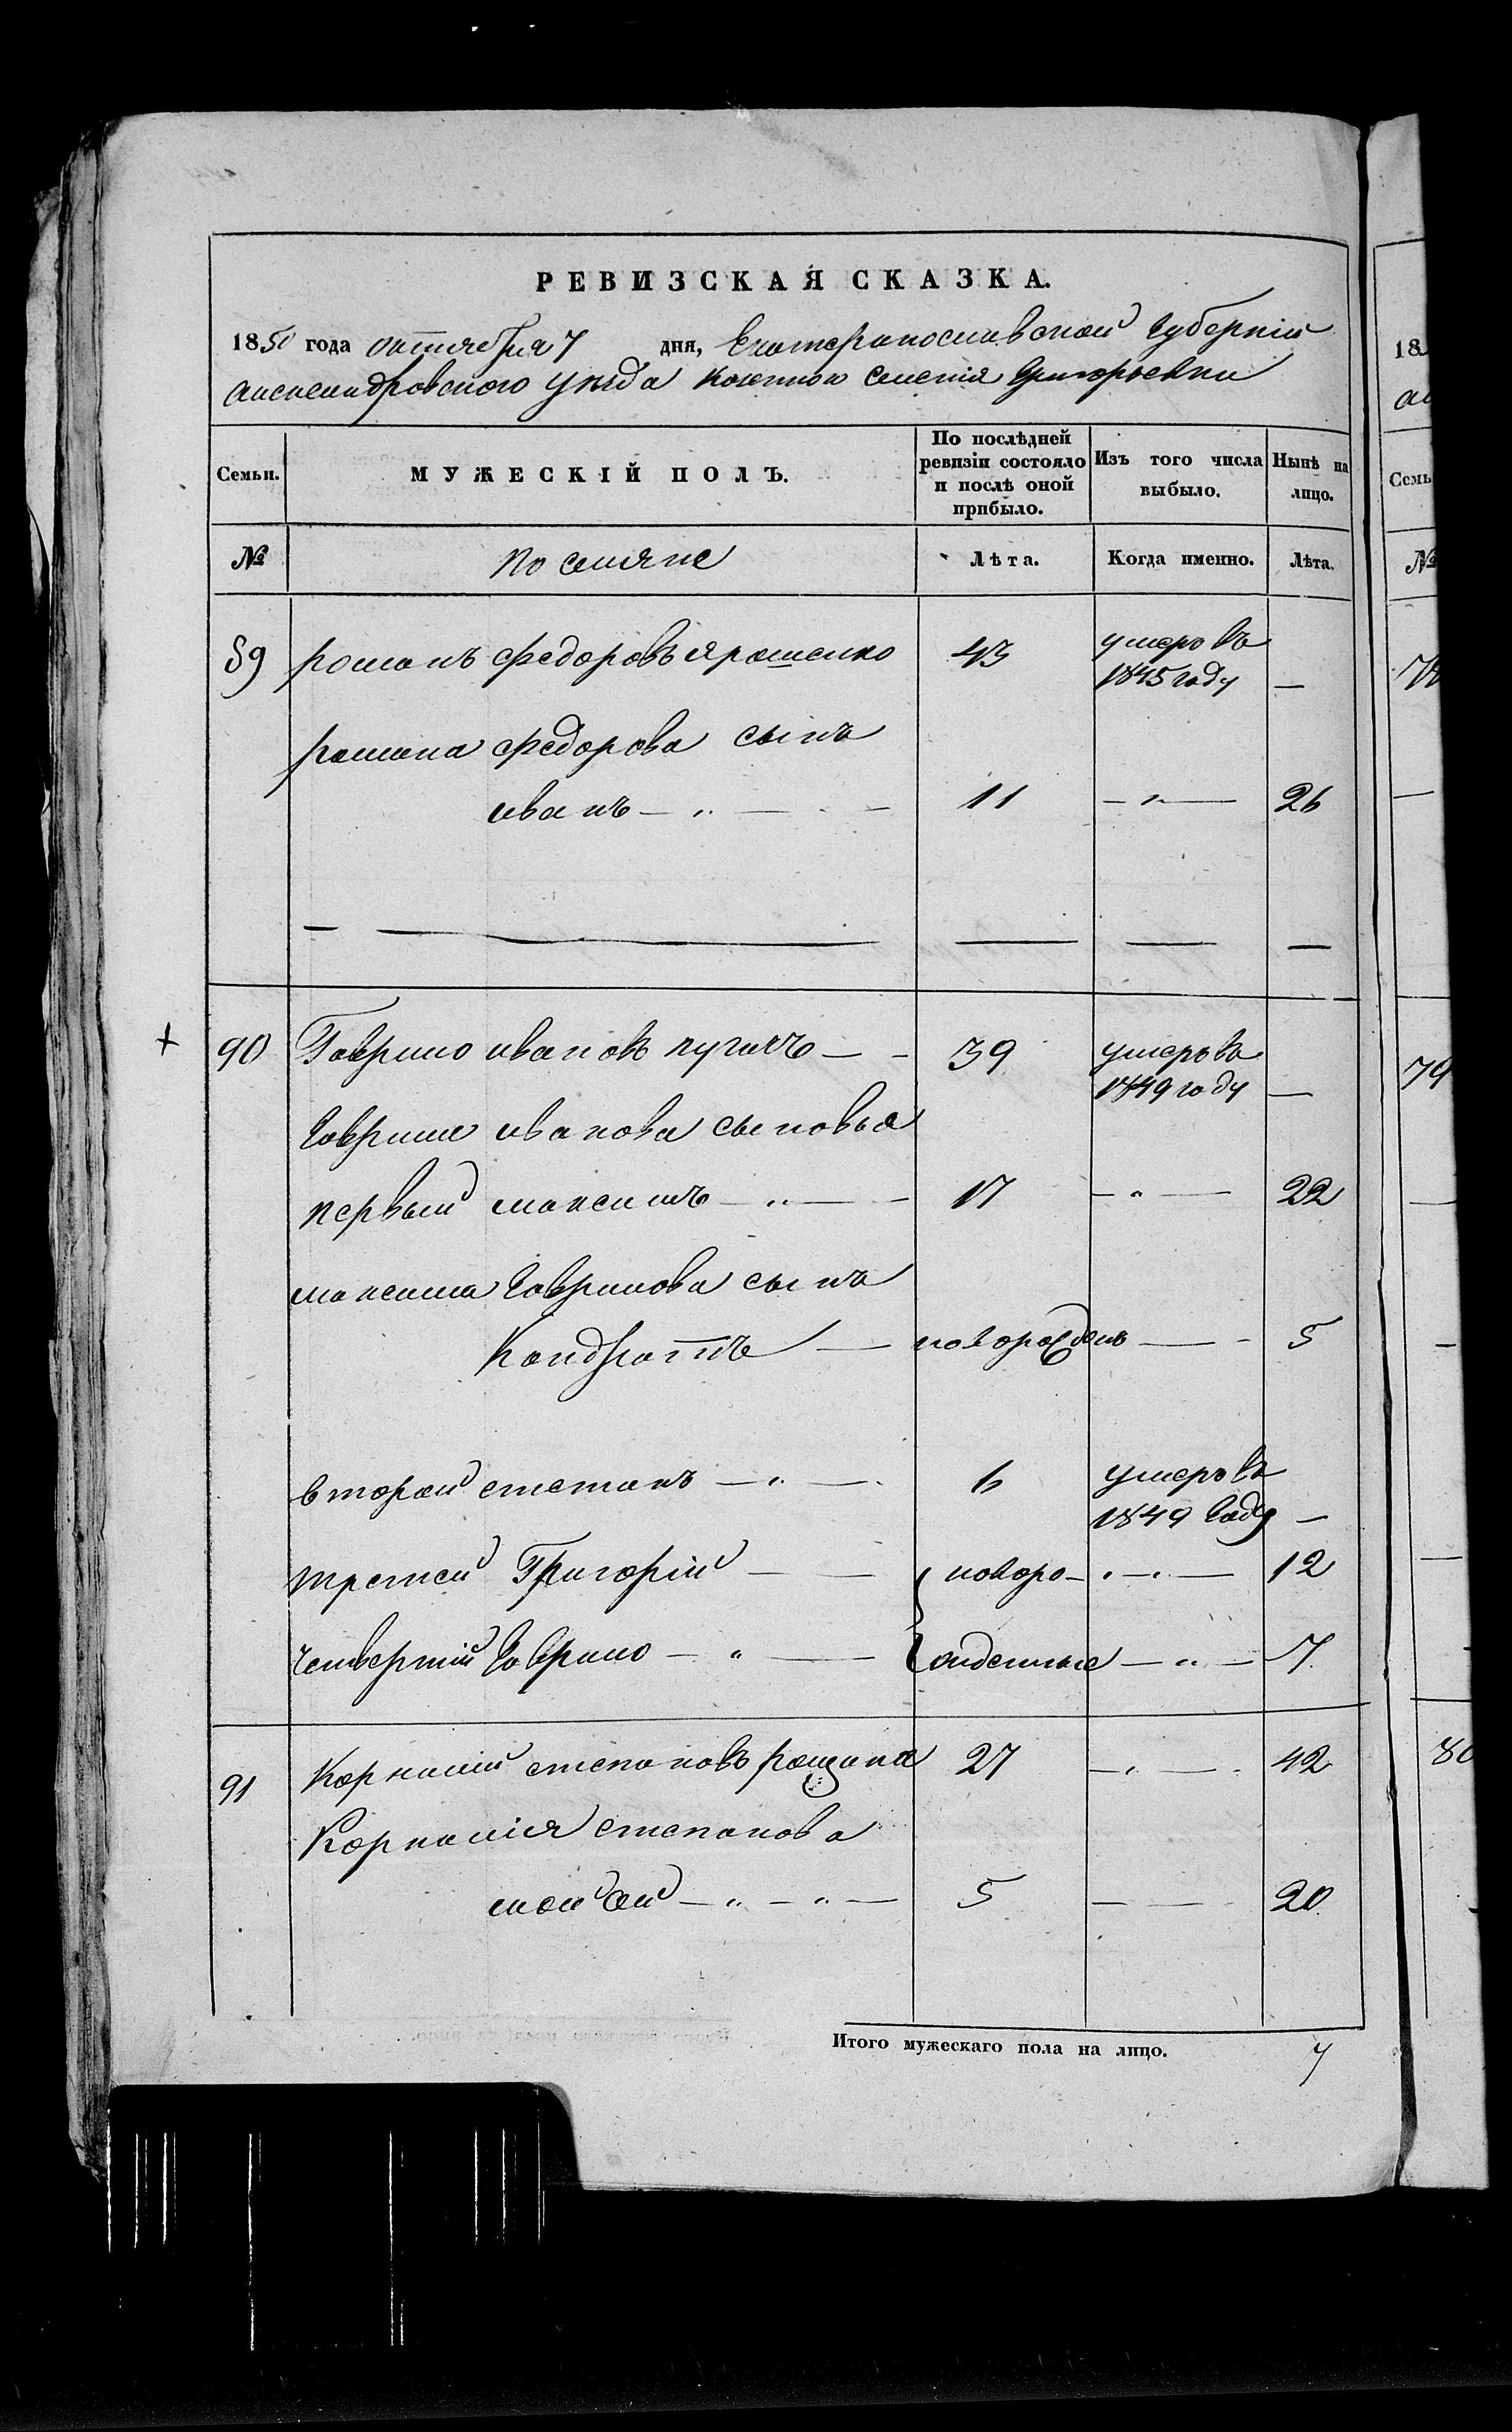 РЕВИЗСКАЯ СКАЗКА.
1850 года октября 7 дня, Екатеринославской Губерніи
александровского уезда Казенного Селенія Григорьевки
Семьи. МУЖЕСКІЙ ПОЛЪ. По послѣдней ревизіи состояло и послѣ оной прибыло. Изъ того числа выбыло. Нынѣ на лицо.
№ поселяне Лѣта. Когда именно. Лѣта.
89 романъ федоровъ ярошенко 43 умеръ въ 1845 году —
романа федорова сынъ
иванъ — 11 — 26
90 Гаврило ивановъ 39 умеръ въ 1849 году —
Гаврила иванова сыновья
первый максимъ — 17 — 22
максима Гаврилова сынъ
Кондратъ — новорожденъ — 5
второй степанъ — 6 умеръ въ 1849 Году —
третей Григорій — новоро- — 12
четвертій Гаврило — жденные — 7
91 Корнилій степановъ 27 — 42
Корнилія степанова
мойсей — 5 — 20
Итого мужескаго пола на лицо. 7
18
Семь
№
79
80